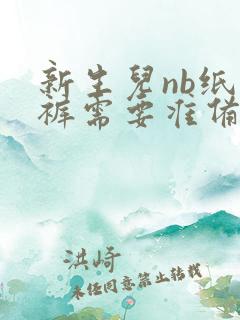 新生兒nb纸
裤需要准备
洪崎
未经同意禁止转载